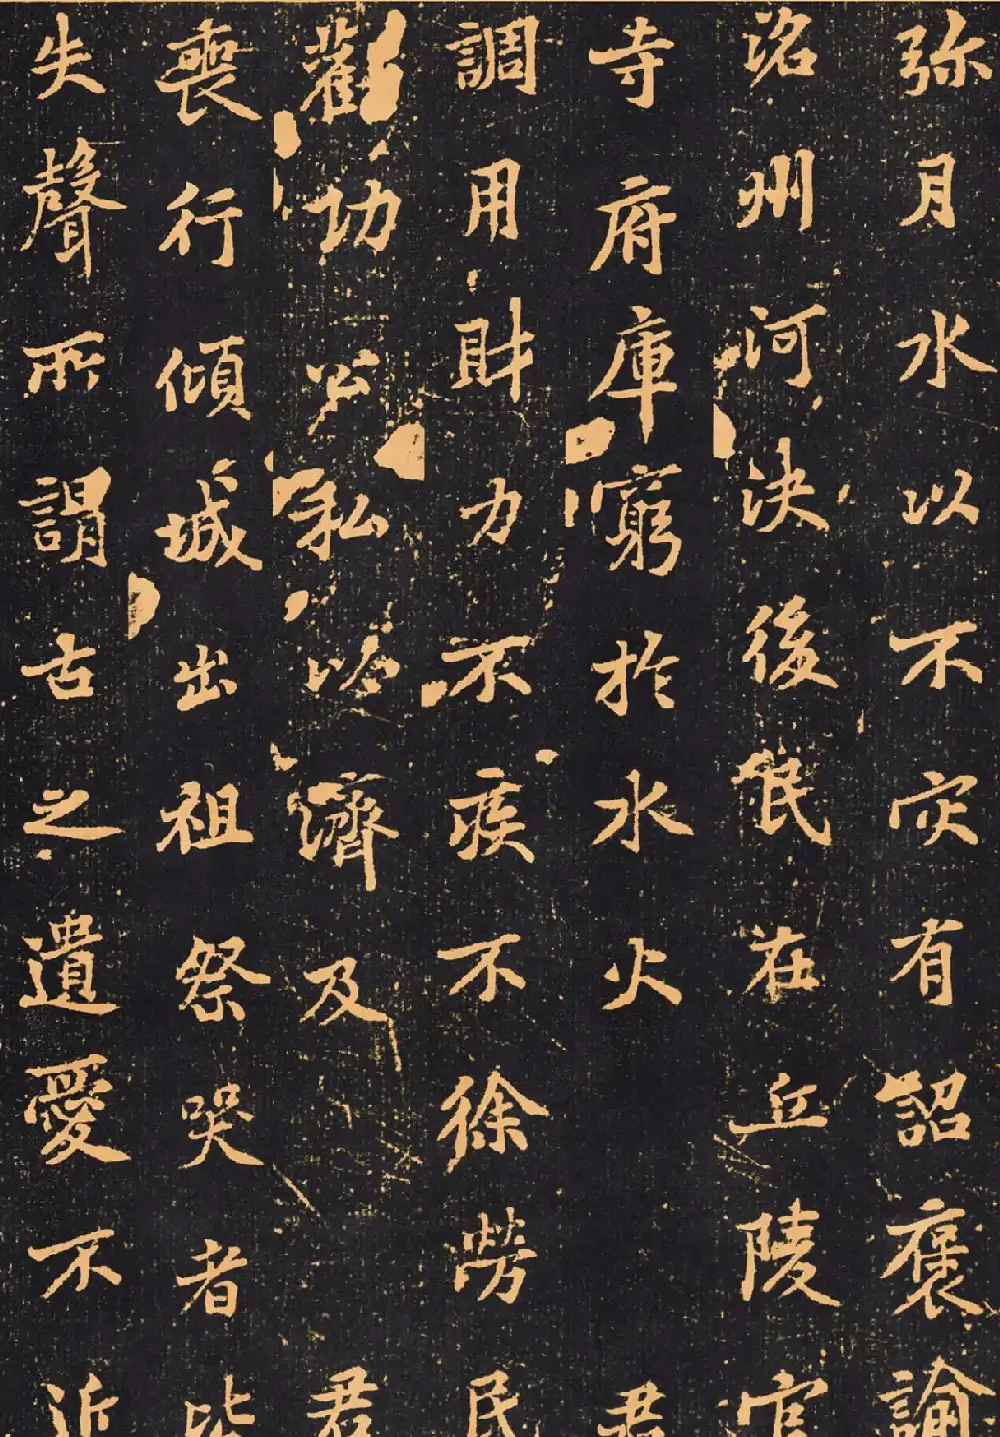 弥月水以不灾有詔褒諭
洺州河決後氓在丘陵官
寺府庫窮於水火君
調用財力不疾不徐勞民
勸功公私以濟及君
喪行傾城出祖祭哭者皆
失聲所謂古之遺愛不近